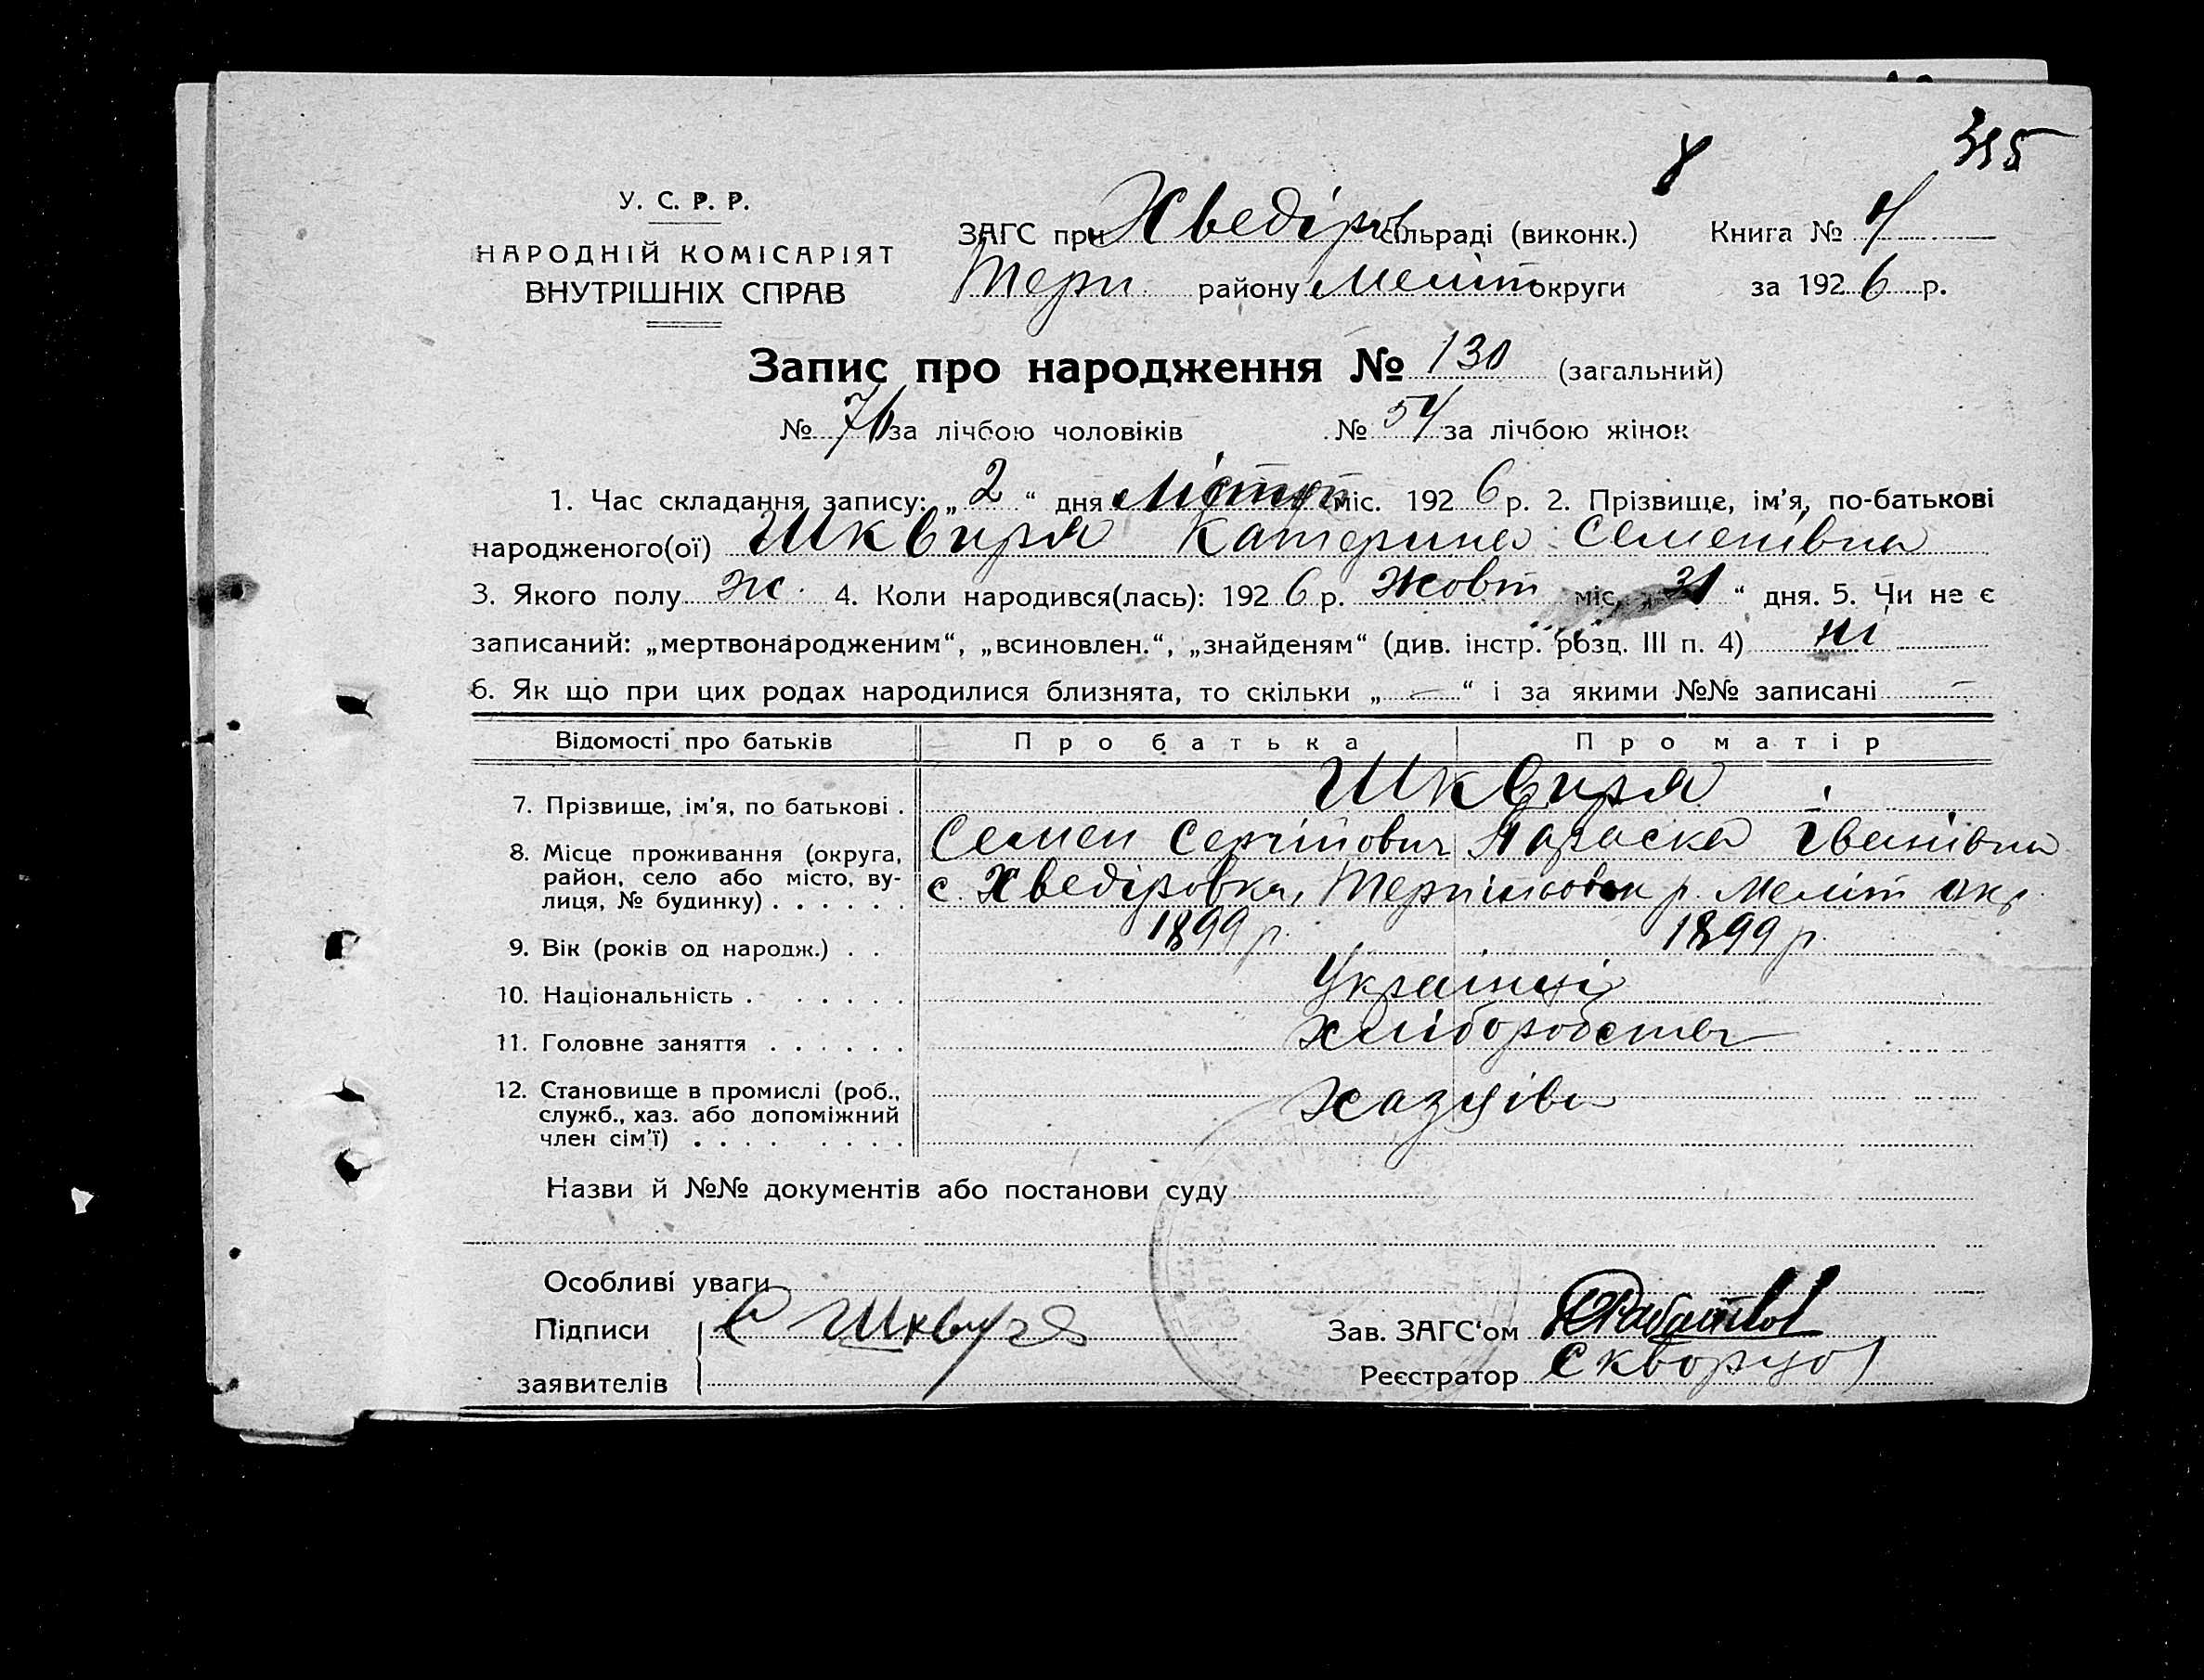 315
У. С. Р. Р.
НАРОДНІЙ КОМІСАРІЯТ
ВНУТРІШНІХ СПРАВ
ЗАГС при Хведірів сільраді (виконк.) Книга № 4
Терп району Меліт округи за 1926 р.
Запис про народження № 130 (загальний)
№ 76 за лічбою чоловіків № 54 за лічбою жінок
1. Час складання запису: „2“ дня Листоп міс. 1926 р. 2. Прізвище, ім’я, по-батькові
народженого(ої) Шквиря Катерина Семенівна
3. Якого полу ж. 4. Коли народився(лась): 1926 р. Жовт міс. „31“ дня. 5. Чи не є
записаний: „мертвонародженим“, „всиновлен.“, „знайденям“ (див. інстр. розд. III п. 4) ні
6. Як що при цих родах народилися близнята, то скільки „—“ і за якими №№ записані —
Відомості про батьків Про батька Про матір
7. Прізвище, ім’я, по батькові . Шквиря
Семен Сергійович Параска Іванівна
8. Місце проживання (округа,
район, село або місто, ву-
лиця, № будинку) . . . . . . с. Хведіровка, Терпіновск р. Меліт окр.
9. Вік (років од народж.) . . 1899 р. 1899 р.
10. Національність . . . . . . Українці
11. Головне заняття . . . . . . хліборобства
12. Становище в промислі (роб.,
служб., хаз. або допоміжний
член сім’ї) . . . . . . . .
Назви й №№ документів або постанови суду
Особливі уваги
Підписи С Шквиря Зав. ЗАГС‘ом
заявителів Реєстратор Скворцов